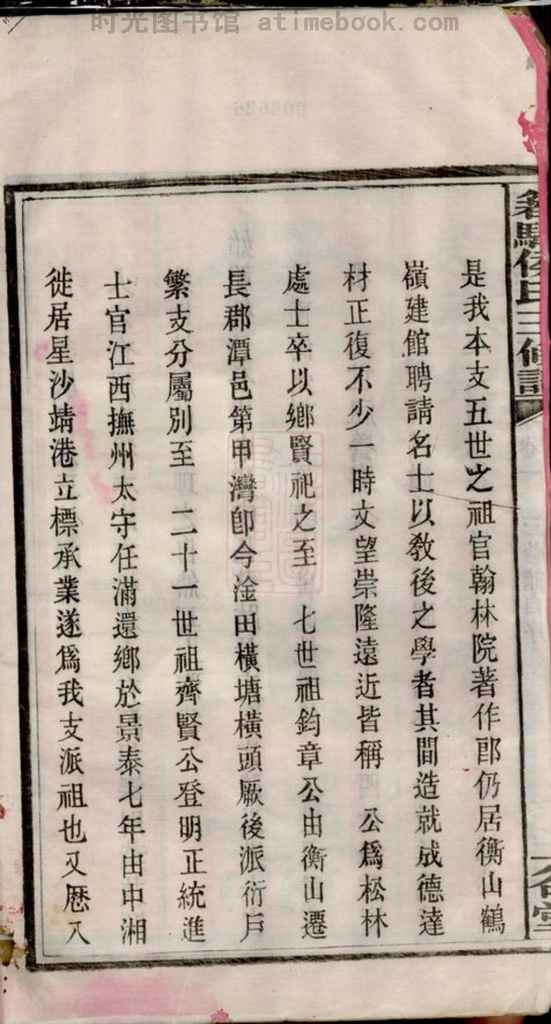 时光图书馆 atimebook.com
是我本支五世之祖官翰林院著作郎仍居衡山鶴
嶺建館聘請名士以敎後之學者其間造就成德達
材正復不少一時文望崇隆遠近皆稱 公爲松林
處士卒以鄉賢祀之至 七世祖鈞章公由衡山遷
長郡潭邑第甲灣卽今淦田橫塘橫頭厥後派衍戶
繁支分屬別至 二十一世祖齊賢公登明正統進
士官江西撫州太守任滿還鄉於景泰七年由中湘
徙居星沙靖港立標承業遂爲我支派祖也又歷入